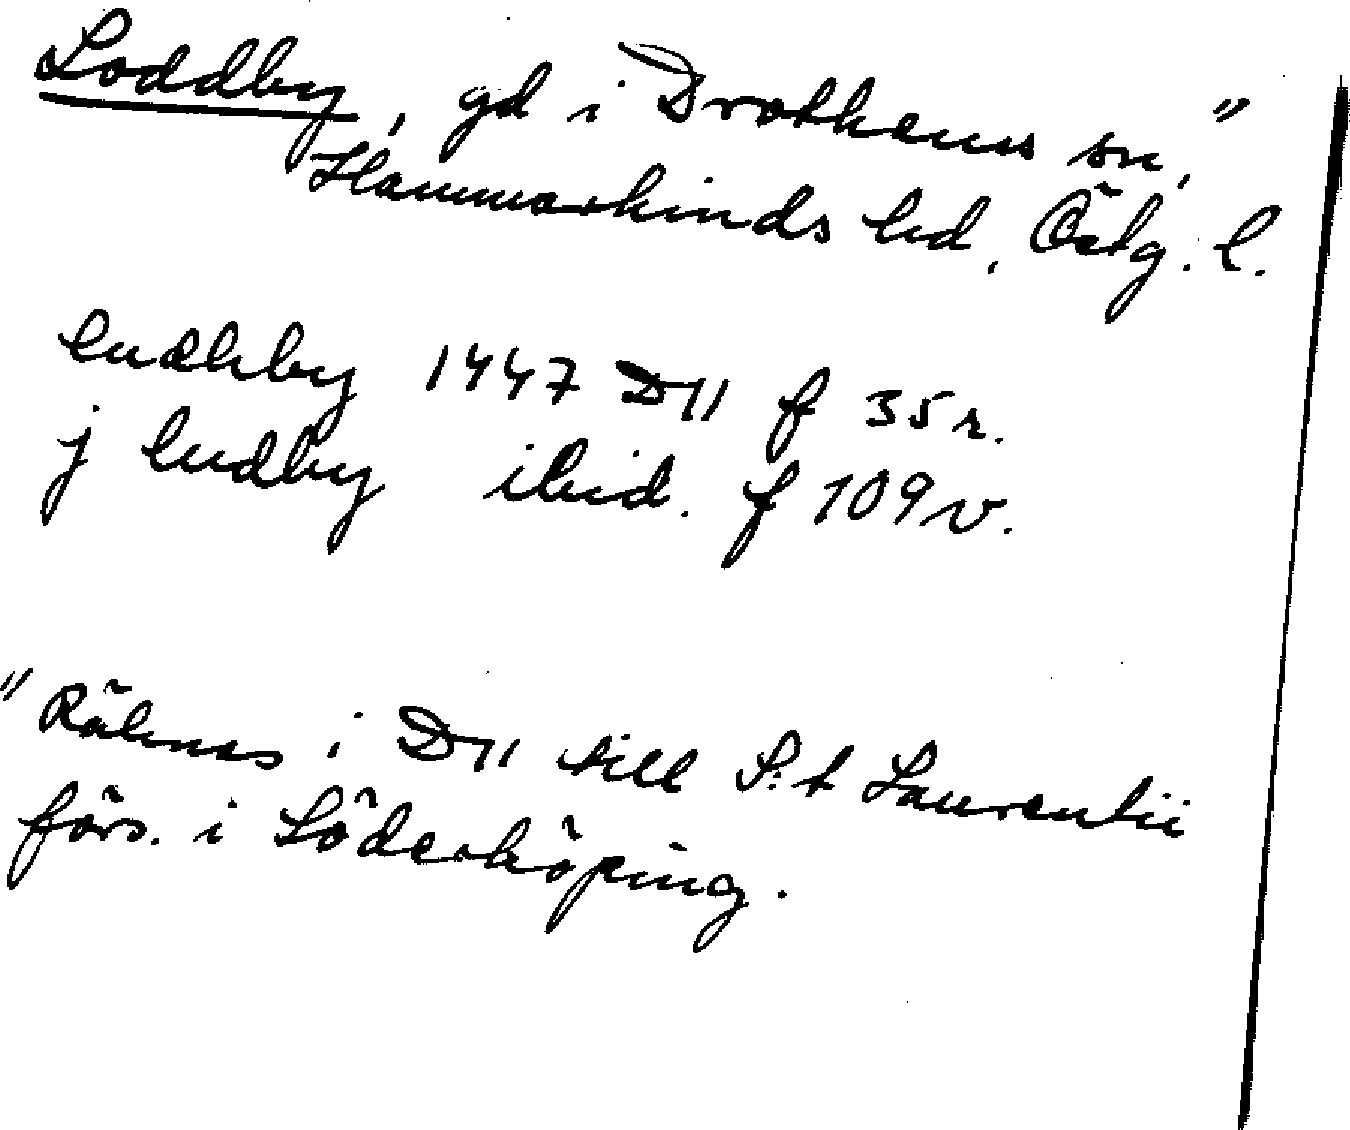 Loddby, gd i Drothems sn, "
Hammarkinds hd, Östg. l.
ludhby 1447 D11 f 35r.
j ludby ibid. f 109v.
" Räknas i D11 till S:t Laurentii
förs. i Söderköping.